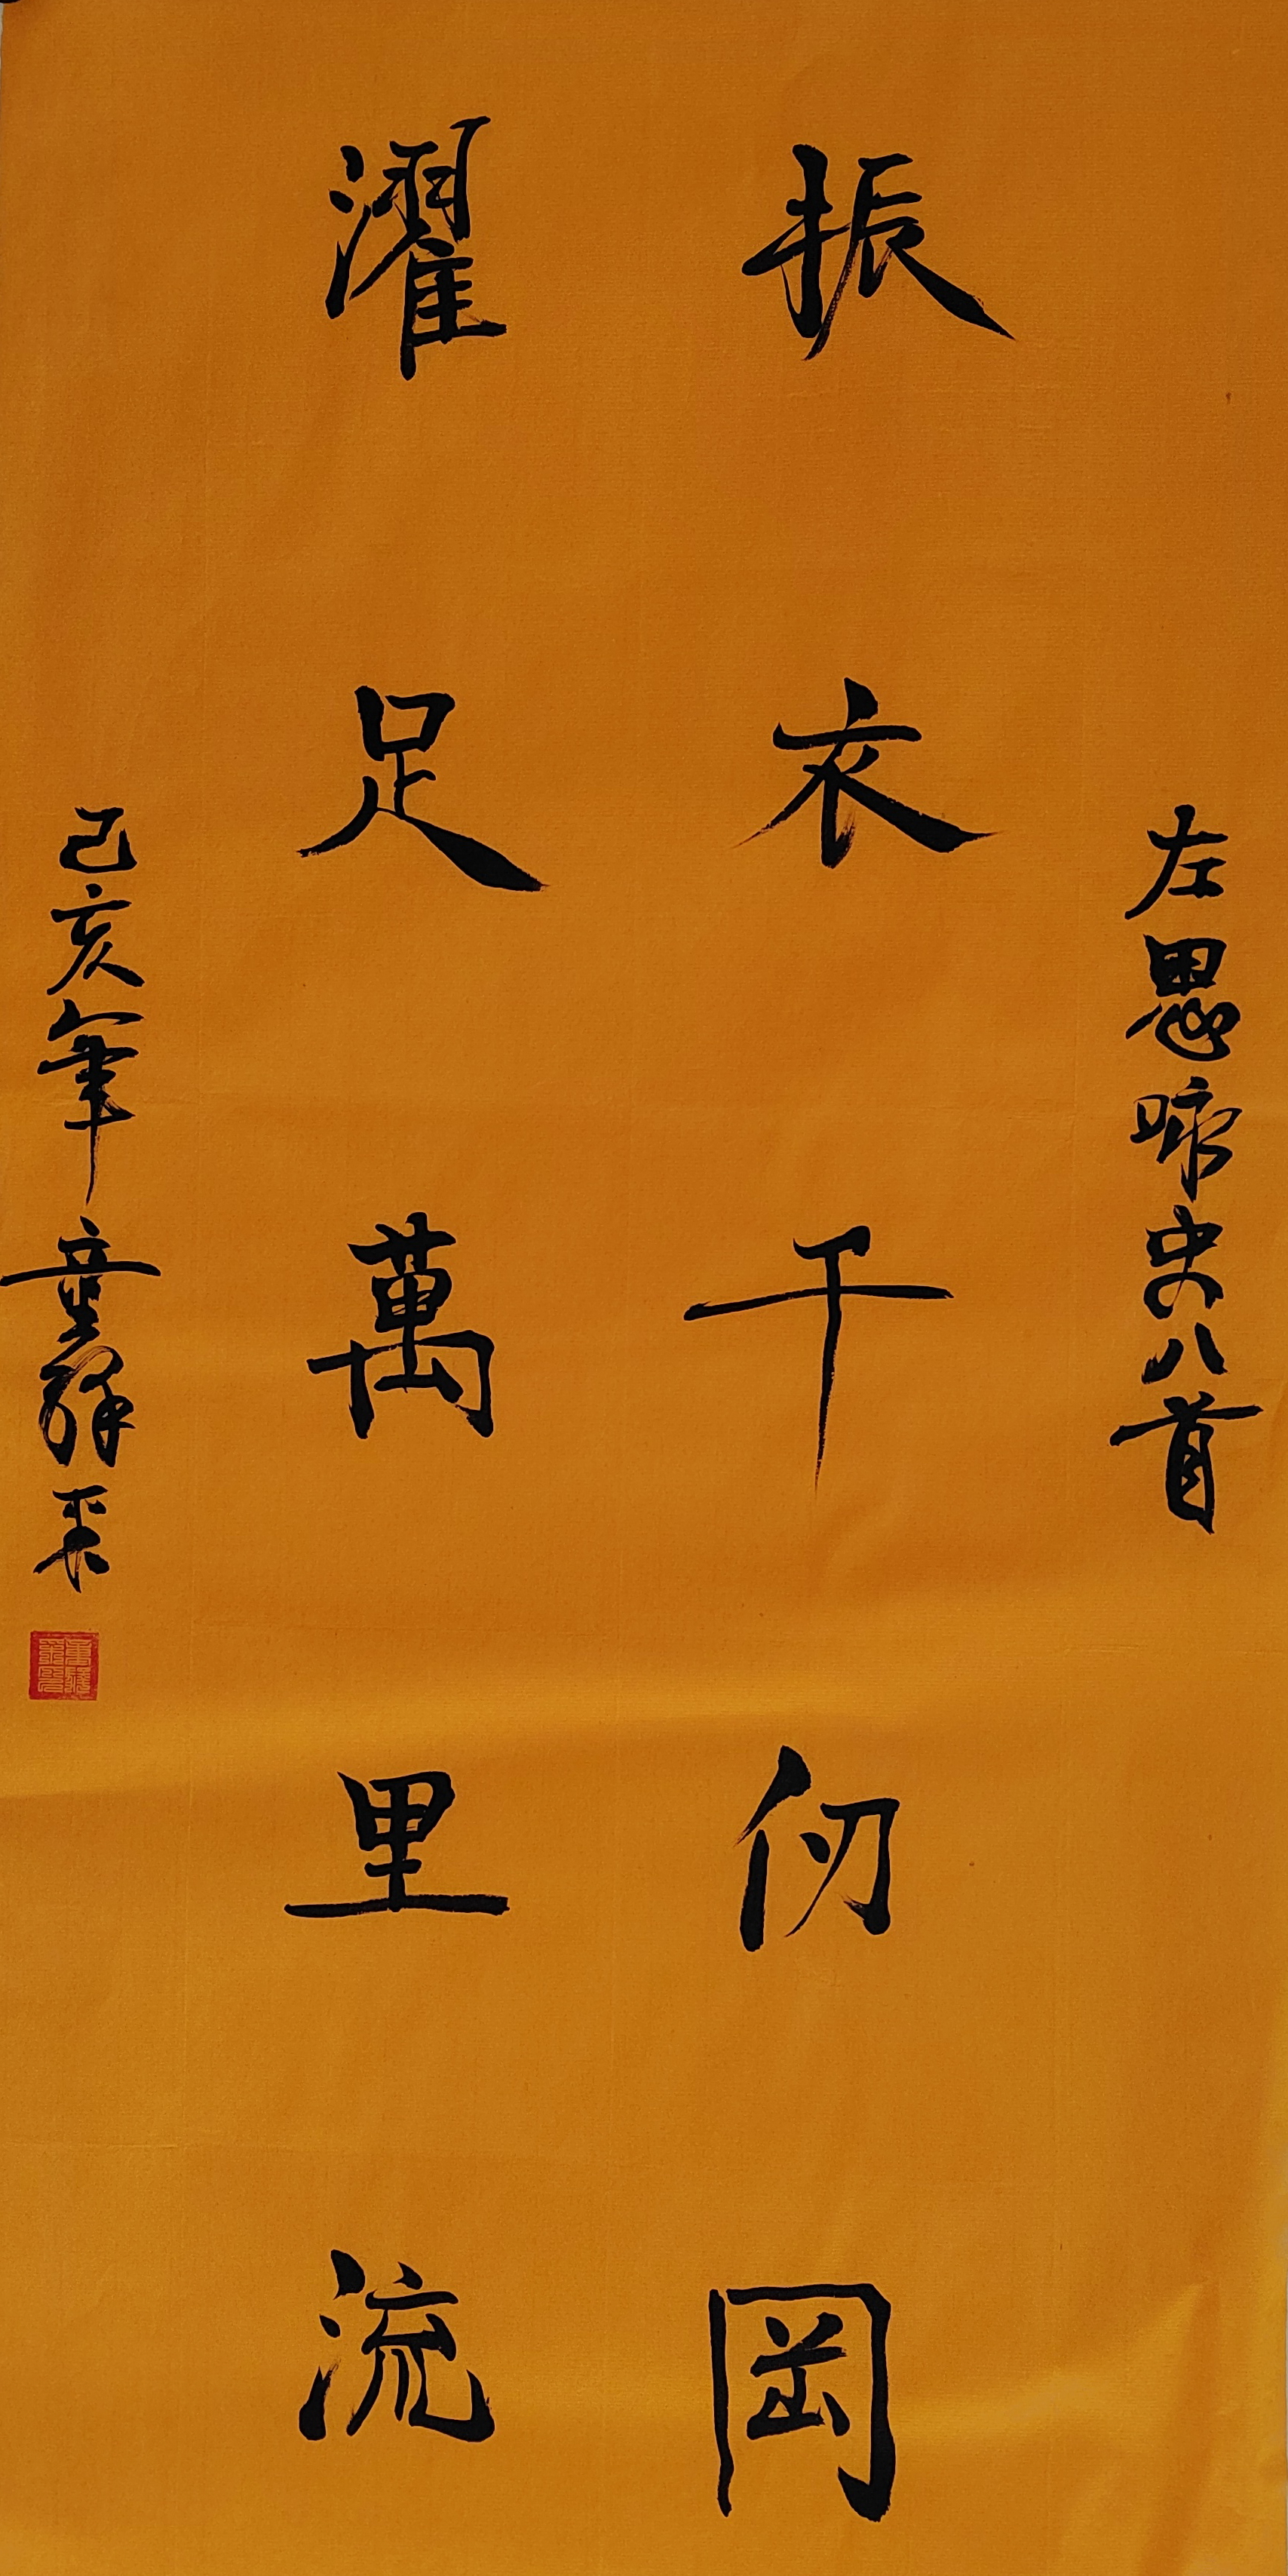 左思咏史八首
振衣千仞岡
濯足萬里流
己亥年童辉平